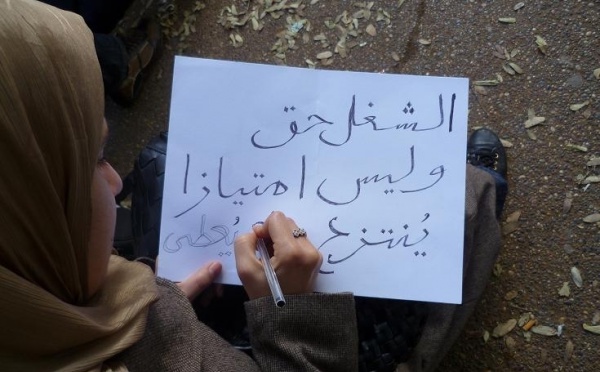 الشغل حق
وليس امتيازا
يُنتزع يُعطى